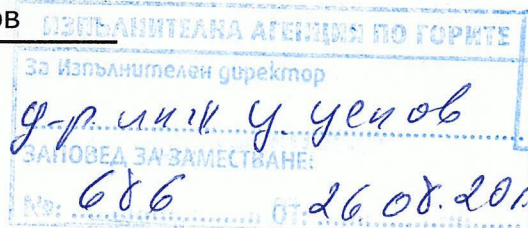 ов
ИЗПЪЛНИТЕЛНА АГЕНЦИЯ ПО ГОРИТЕ
За Изпълнителен директор
д-р инж Ц. Ценов
ЗАПОВЕД ЗА ЗАМЕСТВАНЕ:
№: 686 от: 26.08.201